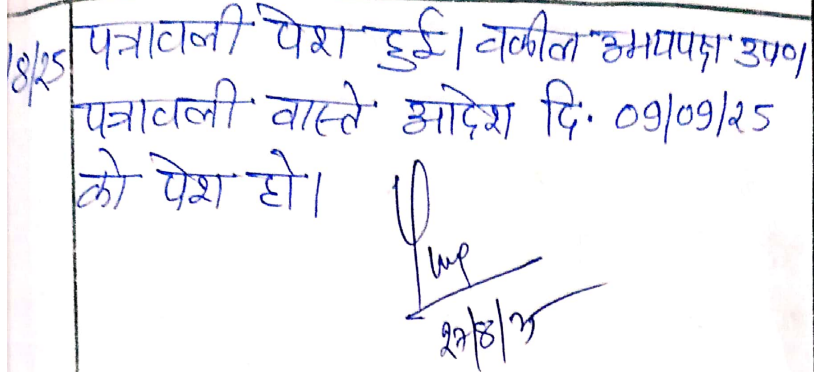 8/25 पत्रावली पेश हुई। वकील उभयपक्ष उप०।
पत्रावली वास्ते आदेश दि. 09/09/25
को पेश हो।
27/8/25